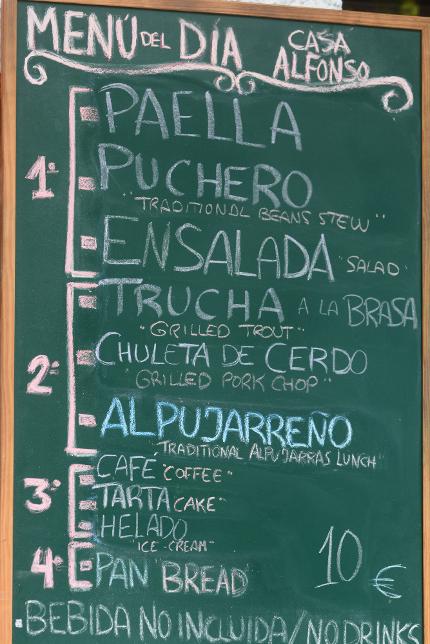 MENÚ DEL DÍA CASA ALFONSO
1º PAELLA
PUCHERO
"TRADITIONAL BEANS STEW"
ENSALADA "SALAD"
2º TRUCHA A LA BRASA
"GRILLED TROUT"
CHULETA DE CERDO
"GRILLED PORK CHOP"
ALPUJARREÑO
"TRADITIONAL ALPUJARRAS LUNCH"
3º CAFÉ "COFFEE"
TARTA "CAKE"
HELADO
"ICE-CREAM"
4º PAN "BREAD"
10 €
BEBIDA NO INCLUIDA/NO DRINKS